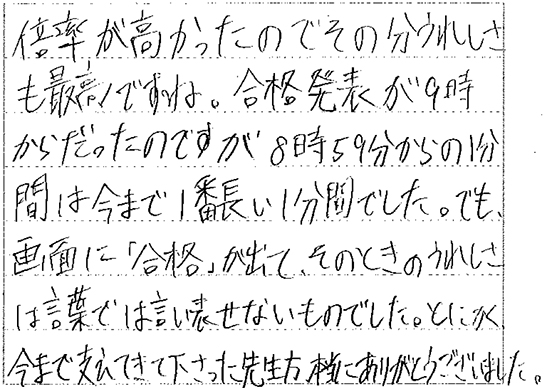 倍率が高かったのでその分うれしさ
も最高!ですね。合格発表が9時
からだったのですが8時59分からの1分
間は今まで1番長い1分間でした。でも、
画面に「合格」が出て、そのときのうれしさ
は言葉では言い表せないものでした。とにかく
今まで支えてきて下さった先生方、本当にありがとうございました。